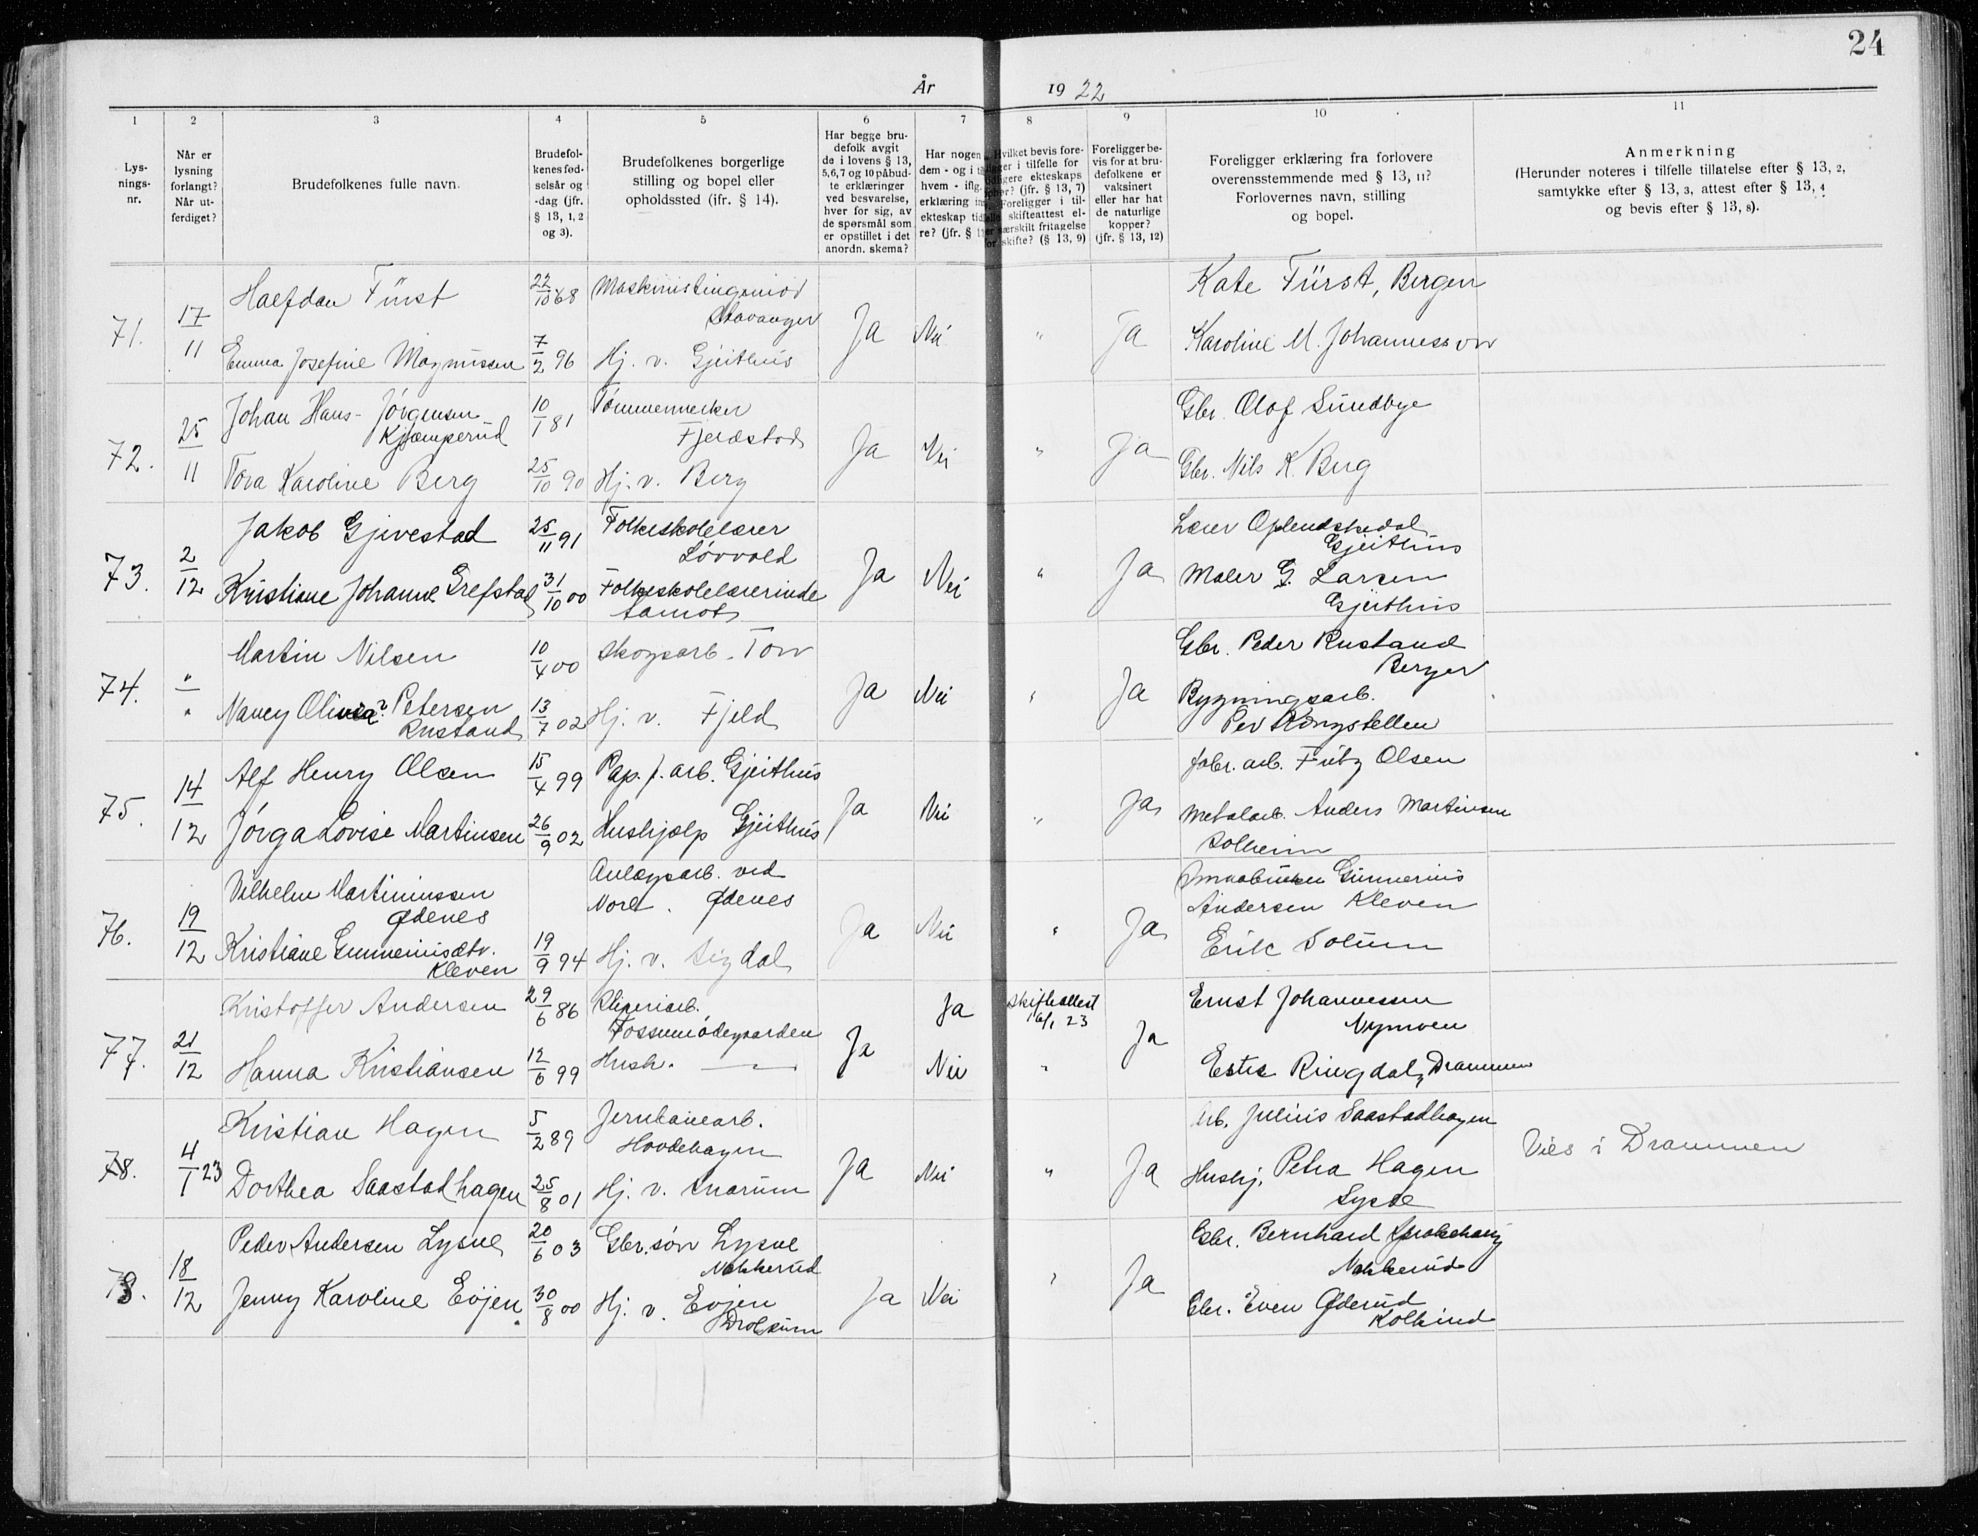 24
År 1922
1 2 3 4 5 6 7 8 9 10 11
Lys-
nings-
nr.
Når er
lysning
forlangt?
Når ut-
ferdiget?
Brudefolkenes fulle navn.
Brudefol-
kenes fød-
selsår og
-dag (jfr.
§ 13, 1, 2
og 3).
Brudefolkenes borgerlige
stilling og bopel eller
opholdssted (jfr. § 14).
Har begge bru-
defolk avgit
de i lovens § 13,
5,6,7 og 10 påbud-
te erklæringer
ved besvarelse,
hver for sig, av
de spørsmål som
er opstillet i det
anordn. skema?
Har nogen
dem - og i
hvem - ifig.
erklæring
ekteskap tid
re? (jfr. §
Hvilket bevis fore-
ligger i tilfelle for
tidligere ekteskaps
ophør? (jfr. § 13, 7)
Foreligger i til-
felle skifteattest el-
ler særskilt fritagelse
for skifte? (§ 13, 9)
Foreligger be-
vis for at bru-
defolkene er
vaksinert
eller har hat
de naturlige
kopper?
(jfr. § 13, 12)
Foreligger erklæring fra forlovere
overensstemmende med § 13, 11?
Forlovernes navn, stilling
og bopel.
Anmerkning
(Herunder noteres i tilfelle tillatelse efter § 13, 2,
samtykke efter § 13, 3, attest efter § 13, 4
og bevis efter § 13, 8).
71. 17/11 Halfdan Fürst 22/10 68 Maskinistingeniør
Stavanger Ja Nei " Ja Kate Fürst, Bergen
Emma Josefine Magnussen 7/2 96 Hj. v. Gjeithus Karoline M. Johannessen
72. 25/11 Johan Hans-Jørgensen
Kjæmperud 10/1 81 Tømmermerker
Fjerdestad Ja Nei " Ja Gbr. Olof Sundbye
Tora Karoline Berg 25/10 90 Hj. v. Berg Gbr. Nils K. Berg
73. 2/12 Jakob Gjivestad 25/11 91 Folkeskolelærer
Løvvold Ja Nei " Ja Lærer Oplendskedal
Gjeithus
Kristiane Johanne Grefstad 31/10 00 Folkeskolelærerinde
Åamot Maler G. Larsen
Gjeithus
74. " Martin Nilsen 10/4 00 Skogsarb. Ja Nei " Ja Gbr. Peder Rustand
Berger
Nancy Olivia? Petersen
Rustand 13/7 02 Hj. v. Fjeld Bygningsarb.
Per Kongstellen
75. 14/12 Alf Henry Olsen 15/4 99 Pap. f. arb. Gjeithus Ja Nei " Ja fabr. arb. Fritz Olsen
Jørga Lovise Martinsen 26/9 02 Hushjælp Gjeithus Metalarb. Anders Martinsen
Solheim
76. 19/12 Vilhelm Martiniussen
Ødenes Anlægsarb. ved
Nore. Ødenes Ja Nei " Ja Gunnerius
Andersen Kleven
Kristiane Gunneriusdtr.
Kleven 19/9 94 Hj. v. Sigdal Erik Solum
77. 21/12 Kristoffer Andersen 29/6 86 Sliperiarb.
Fossumødegaarden Ja Ja Skifteattest
16/1 23 Ja Ernst Johannessen
Nymoen
Hanna Kristiansen 12/6 99 Hush. — Nei " Ringdal, Drammen
78. 4/1 23 Kristian Hagen 5/2 89 Jernbanearb.
Hovdehagen Ja Nei " Ja Arb. Julius Saastadhagen
Dorthea Saastadhagen 25/8 01 Hj. v. Snarum Hushj. Petra Hagen
Sysle
Vies i Drammen
78. 18/12 Peder Andersen Lysne 20/6 03 Gbr. søn Lysne
Nakkerud Ja Nei " Ja Gbr. Bernhard
Nakkerud
Jenny Karoline Evjen 30/8 00 Hj. v. Evjen
Drolsum Gbr. Even Øderud